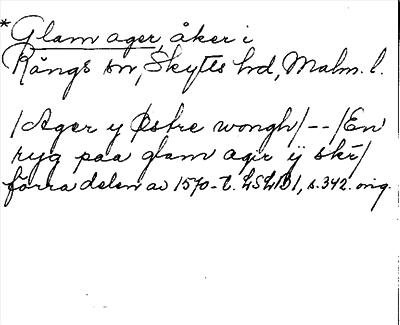 *Glam ager, åker i
Rängs sn, Skytts hd, Malm. l.
/Ager y Østre wongh/--/En
ryg paa glam ager ÿ skr/
förra delen av 1570-t. LSLJB1, s. 342. orig.